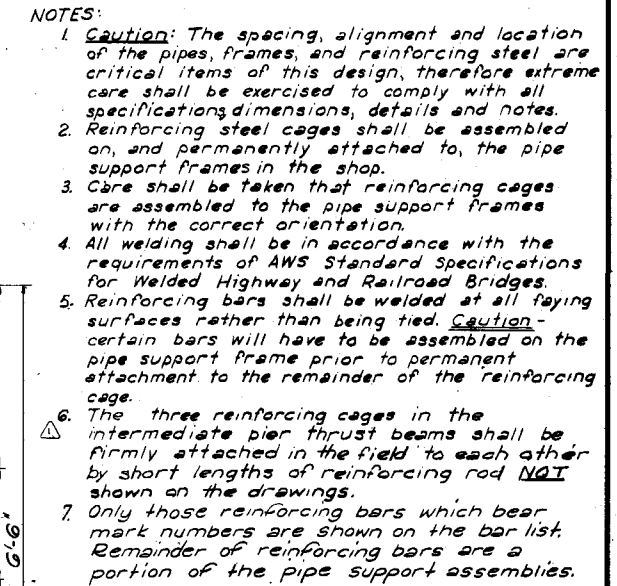 NOTES:
1. Caution: The spacing, alignment and location
of the pipes, frames, and reinforcing steel are
critical items of this design, therefore extreme
care shall be exercised to comply with all
specifications, dimensions, details and notes.
2. Reinforcing steel cages shall be assembled
on, and permanently attached to, the pipe
support frames in the shop.
3. Care shall be taken that reinforcing cages
are assembled to the pipe support frames
with the correct orientation.
4. All welding shall be in accordance with the
requirements of AWS Standard Specifications
for Welded Highway and Railroad Bridges.
5. Reinforcing bars shall be welded at all faying
surfaces rather than being tied. Caution -
certain bars will have to be assembled on the
pipe support frame prior to permanent
attachment to the remainder of the reinforcing
cage.
6. The three reinforcing cages in the
1 intermediate pier thrust beams shall be
firmly attached in the field to each other
by short lengths of reinforcing rod NOT
shown on the drawings.
7. Only those reinforcing bars which bear
mark numbers are shown on the bar list.
Remainder of reinforcing bars are a
portion of the pipe support assemblies.
6'-6"